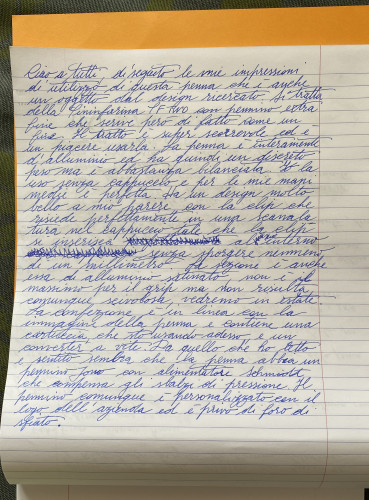 Ciao a tutti, di seguito le mie impressioni
di utilizzo di questa penna che è anche
un oggetto dal design ricercato. Si tratta
della Pininfarina con pennino extra
fine che scrive però di fatto come un
fine. Il tratto è super scorrevole ed è
un piacere usarla. La penna è interamente
d'alluminio ed ha quindi un discreto
peso ma è abbastanza bilanciata. Io la
uso senza cappuccio e per le mie mani
medie è perfetta. Ha un design molto
bello a mio parere con la clip che
risiede perfettamente in una scanala
tura nel cappuccio tale che la clip
si inserisca all'interno
senza sporgere nemmeno
di un millimetro. La sezione è anche
essa di alluminio satinato non è il
massimo per il grip ma non risulta
comunque scivolosa, vedremo in estate
La confezione è in linea con la
immagine della penna e contiene una
cartuccia che sto usando adesso e un
converter a vite. Da quello che ho letto
e sentito sembra che la penna abbia un
pennino con alimentatore schmidt
che compensa gli sbalzi di pressione. Il
pennino comunque è personalizzato con il
logo dell'azienda ed è privo di foro di
sfiato.